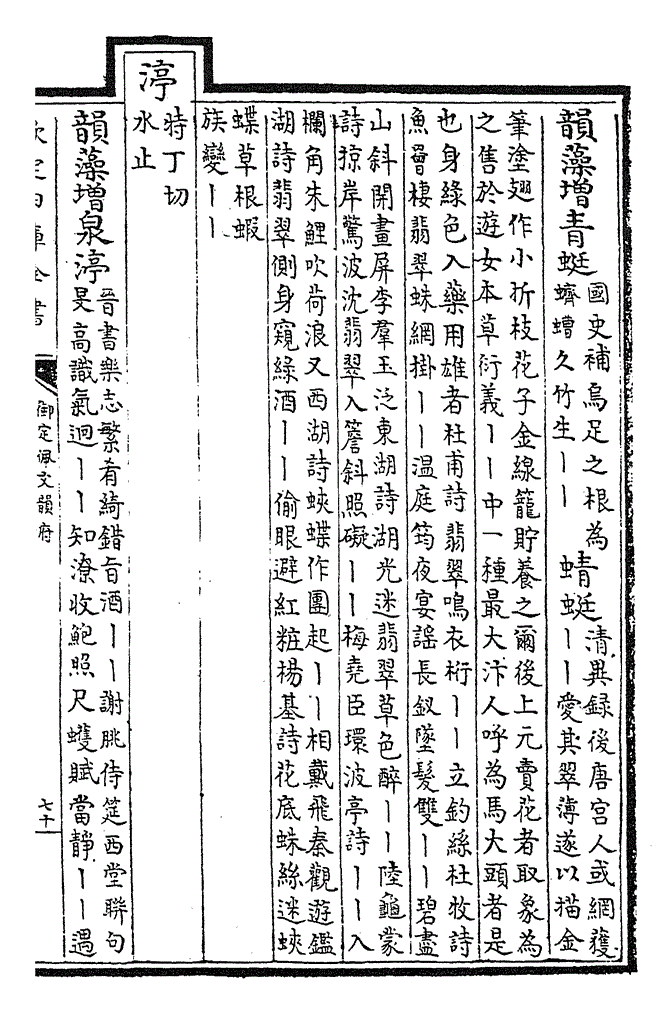 韻藻增青蜓國史補烏足之根為
蠐螬久竹生丨丨
蜻蜓清異録後唐宫人或網獲
丨丨愛其翠薄遂以描金
筆塗翅作小折枝花子金線籠貯養之爾後上元賣花者取象為
之售於遊女本草衍義丨丨中一種最大汴人呼為馬大頭者是
也身緑色入藥用雄者杜甫詩翡翠鳴衣桁丨丨立釣絲杜牧詩
魚罾棲翡翠蛛網掛丨丨温庭筠夜宴謡長釵墜髮雙丨丨碧盡
山斜開畫屏李羣玉泛東湖詩湖光迷翡翠草色醉丨丨陸龜蒙
詩掠岸驚波沈翡翠入簷斜照礙丨丨梅堯臣環波亭詩丨丨入
欄角朱鯉吹荷浪又西湖詩蛺蝶作團起丨丨相戴飛秦觀遊鑑
湖詩翡翠側身窺緑酒丨丨偷眼避紅粧楊基詩花底蛛絲迷蛺
蝶草根蝦
族變丨丨
渟特丁切
水止
韻藻增泉渟晉書樂志繁肴綺錯旨酒丨丨謝朓侍筵西堂聯句
旻高識氣迥丨丨知潦收鮑照尺蠖賦當静丨丨遇
欽定四庫全書
御定佩文韻府
七十